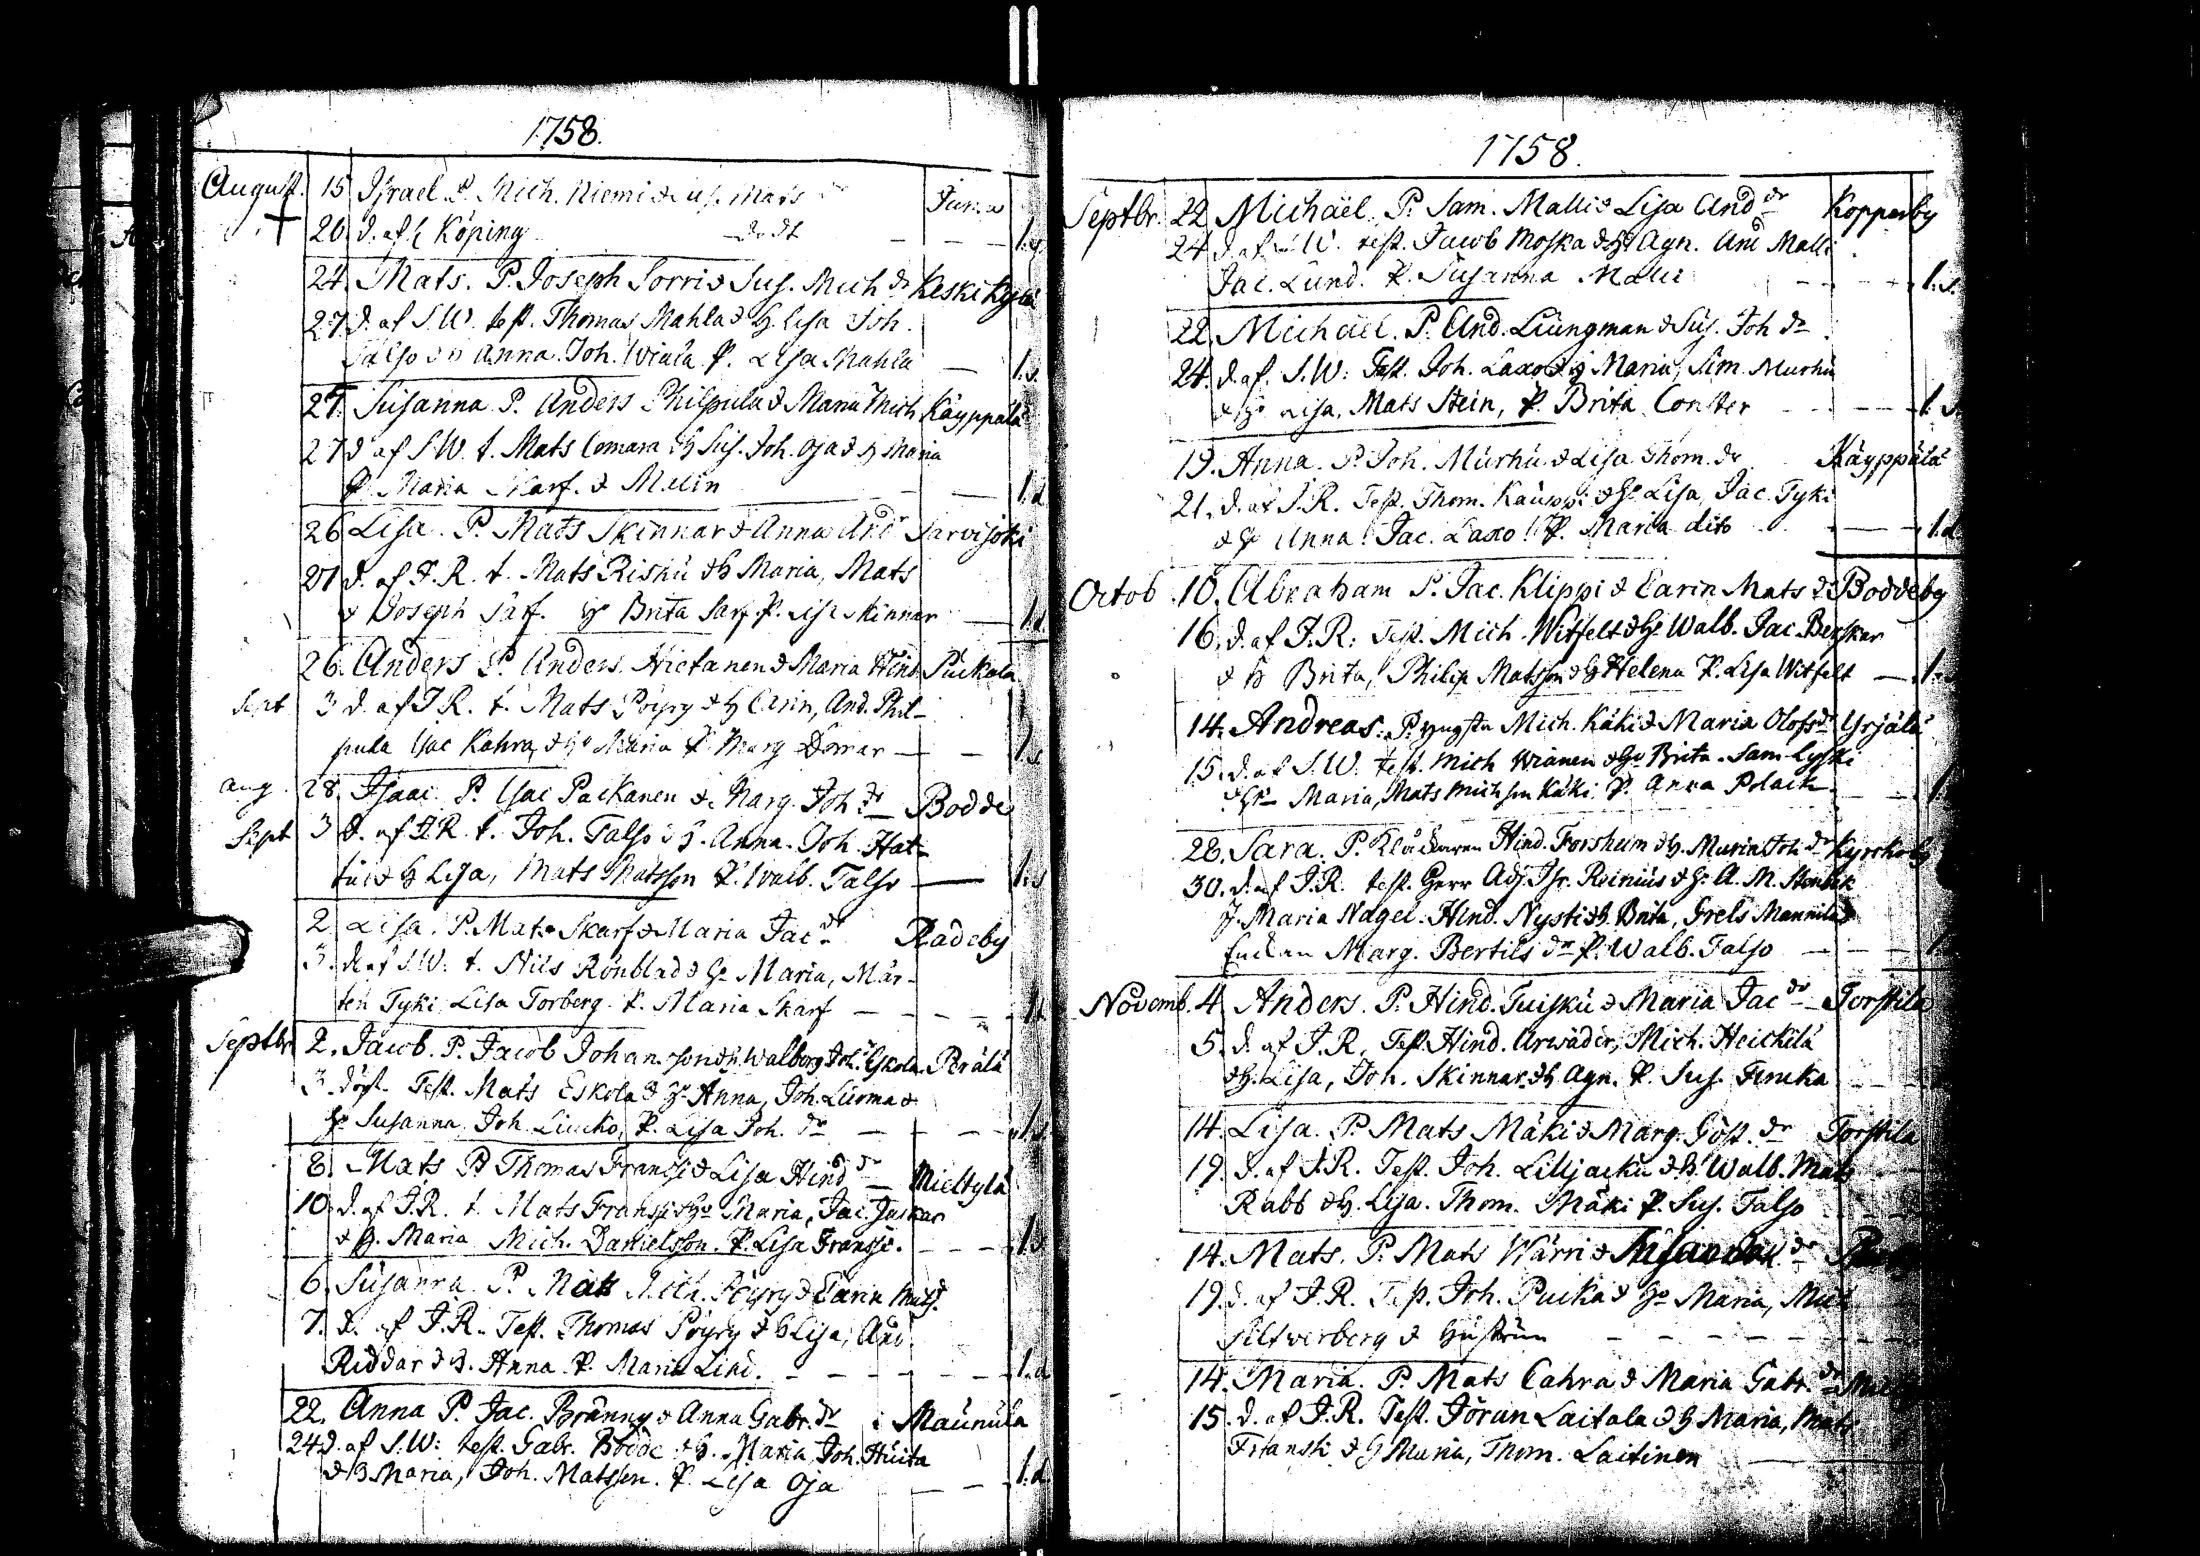 1758.
August. 15 Israel. P. Mich. Niemi & Sus. Mats
20. d. af Köping
24. Mats. P. Joseph Sorri & Sus. Mich dr Keskikylä
27. d. af S.W. test. Thomas Mahla & H. Lisa Joh.
Talso & H Anna. Joh. Wiala P. Lisa Mahla — 1.s.
27. Susanna. P. Anders Philpula & Maria Mich Käyppälä
27 d af S.W. t. Mats Comara & H Sus. Joh. Oja & H Maria
P. Maria Skarf. & Melin — 1.d
26 Lisa. P. Mats Skinnar & Anna And dr Jarvisoki
27 d. af J.R. t. Mats Riskü & H Maria, Mats
& Joseph Sarf. H Brita Sarf. P. Lisa Skinnar — 1.d
26. Anders P. Anders Hietanen & Maria Hind. Puckala
Sept 3 d. af J R. t. Mats Pöyry & H Carin, And. Phil-
pula Isac Kahra & H Maria P. Marg — 1.s
aug. 28. Isaac. P. Isac Packanen & Marg. Joh. dr — Bodde
Sept 3 d. af J.R. t. Joh. Talso & H. Anna. Joh. Hat-
& H Lisa, Mats Matsson P. Walb. Talso — 1.s
2. Lisa. P. Mats Skarf & Maria Jac dr Radeby
3. d. af S.W: t. Nils Rönblad & H Maria, Mår-
ten Tyki Lisa Torberg. P. Maria Skarf — — — —
Septbr 2. Jacob. P. Jacob Johansson & H. Walborg Joh. Eskola. Perälä
3. döpt. Test. Mats Eskola & H Anna, Joh. Luoma &
H Susanna, Joh. Liucko, P. Lisa Joh. dr — — — 1.s
8. Mats P. Thomas Franssi & Lisa Hind dr — Mieltylä
10 d. af J.R. t. Mats Franssi & H Maria, Jac. Juskar
& H. Maria Mich. Danielsson. P. Lisa Franssi. — — 1.s
6. Susanna. P. Mats Mich. Pöyry & Carin Mats.
7. d. af J.R. Test. Thomas Pöyry & H Lisa, And.
Riddar & H. Anna P. Maria Lind. — — — — 1.d
22. Anna P. Jac. Bränny & Anna Gabr. dr Maunula
24 d. af S.W: test. Gabr. Bodde & H. Maria Joh. Huita
& H Maria, Joh. Matsson. P. Lisa Oja — — 1.d
1758.
Septbr. 22. Michaël. P. Sam. Malli & Lisa And dr Kopparby
24 d. af S W. test. Jacob Moska & H Agn. And Malli
Jac. Lund. P. Susanna Malli — — — 1.s.
22. Michael. P. And. Liungman & Sus. Joh dr
24. d. af. S.W: Test. Joh. Laxo & H Maria, Sim. Murhu
& H Lisa, Mats Stein, P. Brita Conster — — — 1.s.
19. Anna. P. Joh. Murhu. & Lisa Thom. dr Käyppälä
21. d. af J.R. Test. Thom. Kauppi & H. Lisa, Jac. Tyki
& H Anna. Jac. Laxo. P. Maria dito — — 1.d
Octob. 10. Abraham P. Jac. Klippi & Carin Mats dr Boddeby
16. d. af J.R: Test. Mich. Witfelt & H. Walb. Jac. Berskar
& H Brita, Philip Matsson & H Helena P. Lisa Witfelt — 1.
14. Andreas. P. yngsta Mich. Käki & Maria Olofs dr Yrjälä
15. d. af S.W. test. Mich Wianen & H Brita. Sam Lyski
& H Maria, Mats Michson Käki. P. Anna Polack — — 1.
28. Sara. P. Klåckaren Hind. Forsheim & H. Maria Joh dr Kyrckoby
30. d. af J.R. test. Herr Adj. Isr. Reinius & H. A. M. Stenbek
J. Maria Nagel. Hind. Nysti & H. Brita, Grels Mannila &
Enckan Marg. Bertils dr P. Walb. Talso — — 1.
Novemb. 4. Anders. P. Hind. Tuisku & Maria Jac dr — Torstila
5. d. af J.R. Test. Hind. Arwäder, Mich. Heickilä
& H. Lisa, Joh. Skinnar & H Agn. P. Sus. — —
14. Lisa. P. Mats Mäki & Marg. Göst. dr Torstila
19. d. af J.R. Test. Joh. Lilljacku & H. Walb. Mats
Rabb & H. Lisa. Thom. Mäki P. Sus. Talso — —
14. Mats. P. Mats Wärri & Susanna dr
19. d. af J.R. Test. Joh. Pucka & H Maria, Mich
Silfverberg & Hustrun — — — — —
14. Maria. P. Mats Cahra & Maria Gabr. dr
15. d. af J.R. Test. Jöran Laitala & H Maria, Mats
Franski & H Maria, Thom. Laitinen —